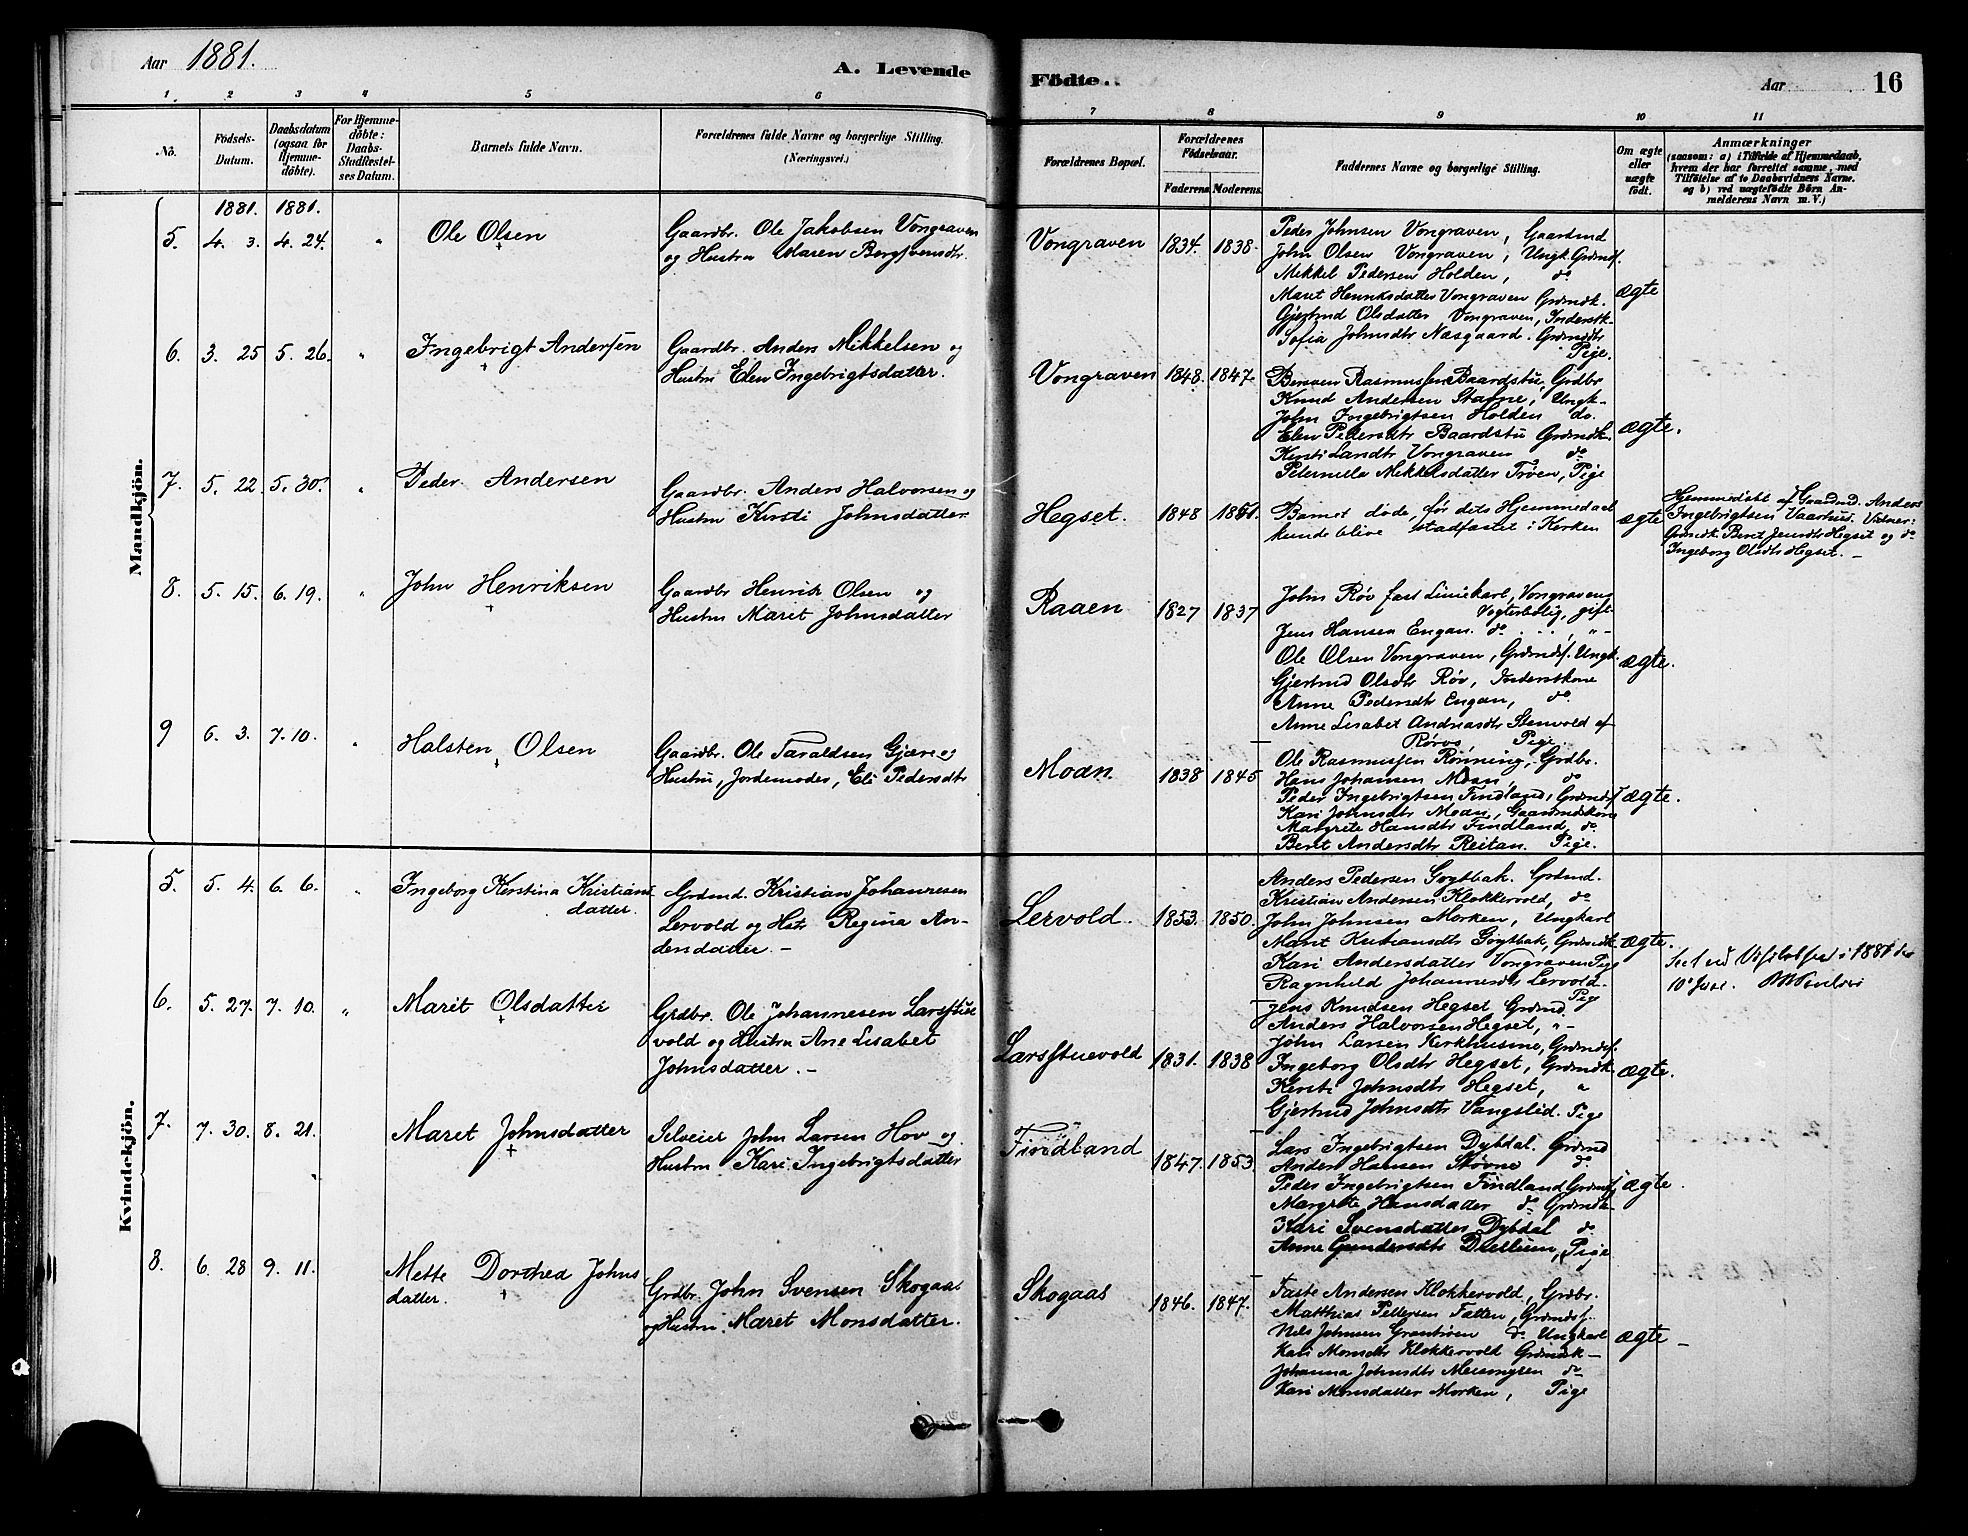 Aar 1881.
A. Levende
Födte.
Aar
16
1. 2 3 4 5 6 7 8 9 10 11
No.
Födsels-Datum.
Daabsdatum (ogsaa for Hjemme-döbte).
For Hjemme-döbte: Daabs-Stadfæstel-ses Datum.
Barnets fulde Navn.
Forældrenes fulde Navne og borgerlige Stilling. (Næringsvei.)
Forældrenes Bopæl.
Forældrenes Födselsaar.
Faderens. Moderens.
Faddernes Navne og borgerlige Stilling.
Om ægte eller uægte født.
Anmærkninger
(saasom: a) i Tilfælde af Hjemmedaab, hvem der har forrettet samme, med Tilföielse af to Daabsvidners Navne. og b) ved uægtefödte Börn An-melderens Navn m. V.)
Mandkjön.
1881. 1881.
5. 4. 3. 4. 24. " Ole Olsen
Gaardbr. Ole Jakobsen Vongraven
og Hustru Maren Bergsvendtr.
Vongraven 1834. 1838.
Peder Johnsen Vongraven, Gaardmd
John Olsen Vongraven, Ungk. Grdmds.
Mikkel Pedersen Holden, do
Maret Henriksdatter Vongraven Grdmdk.
Gjertrud Olsdatter Vongraven, Inderstk.
Sofia Johnsdtr Næsgaard. Grdmdtr
Pige.
ægte
6. 3. 25 5. 26. " Ingebrigt Andersen
Gaardbr. Anders Mikkelsen og
Hustru Elen Ingebrigtsdatter.
Vongraven 1848. 1847.
Rasmussen Baardstu, Grdbr
Knud Andersen Stavne, Ungk-
John Ingebrigtsen Holden do.
Elen Pedersdtr Baardstu Grdmdk.
Kersti Larsdtr Vongraven do
Peternella Mikkelsdatter Trøen, Pige
ægte.
7. 5. 22. 5. 30. " Peder Andersen
Gaardbr. Anders Halvorsen og
Hustru Kersti Johnsdatter
Hegset. 1848 1851.
Barnet døde, før dets Hjemmedaab
kunde blive stadfæstet i Kirken
ægte
Hjemmedøbt af Gaardmd. Anders
Ingebrigtsen Vaarhus. Vidner:
Grdmdk. Beret Jensdtr Hegset og do
Ingeborg Olsdtr Hegset. -
8. 5. 15. 6. 19. " John Henriksen
Gaardbr Henrik Olsen og
Hustru Maret Johnsdatter
Raaen 1827 1837
John Røv fast Liniekarl, Vongravens
Vogterbolig, gift
Jens Hansen Engan. do . . . , " -
Ole Olsen Vongraven, Grdmds. Ungk.
Gjertrud Olsdtr Røv, Inderstkone
Anne Pedersdtr Engan, do
Anne Lisabet Andreasdtr Stenvold af
Røros, Pige
ægte.
9 6. 3. 7. 10. " Halsten Olsen
Gaardbr. Ole Taraldsen Gjære og
Hustru, Jordemoder, Eli Pedersdtr
Moan. 1838 1845
Ole Rasmussen Rönning, Grdbr.
Hans Johansen Moan, do
Peder Ingebrigtsen Findland, Grdmds
Kari Johnsdtr Moan, Gaardmdskone
Margrete Hansdtr Findland, do.
Beret Andersdtr Reitan. Pige.
ægte.
Kvindekjön.
5. 5. 4. 6. 6. " Ingeborg Kerstina Kristians
datter.
Grdmd. Kristian Johannesen
Lervold og Hstr Regina An-
dersdatter. -
Lervold. 1853. 1850.
Anders Pedersen Gogtbak. Grdmd.
Kristian Andersen Klokkervold, do
John Johnsen Morken, Ungkarl
Marit Kristiansdtr Gogtbak, Grdmdk
Kari Andersdatter Vongraven Pige
Ragnheld Johannesdtr Lervold.
Pige
ægte.
10de Juni.
6. 5. 27. 7. 10. " Marit Olsdatter
Grdbr. Ole Johannesen Larsstue
vold og Hustru Ane Lisabet
Johnsdatter. -
Larsstuevold 1831. 1838
Jens Knudsen Hegset Grdmd.
Anders Halvorsen Hegset, " -
John Larsen Kirkhusmo, Grdmds.
Ingeborg Olsdtr Hegset, Grdmdk
Kersti Johnsdtr Hegset, "
Gjertrud Johnsdtr Vangslid. Pige
ægte.
7. 7. 30. 8. 21. Maret Johnsdatter
Selveier John Larsen Hov og
Hustru Kari Ingebrigtsdatter
Findland 1847. 1853.
Lars Ingebrigtsen Dybdal. Grdmd
Anders Hansen Stövne do
Peder Ingebrigtsen Findland Grdmds.
Margrete Hansdatter do Grdmdk-
Kari Svensdatter Dybdal do
Anne Gundersdtr , Pige
ægte.
8. 6. 28 9. 11. Mette Dorthea Johns
datter.
Grdbr. John Svensen Skogaas
og Hustru Maret Monsdatter.
Skogaas 1846. 1847.
Faste Andersen Klokkervold, Grdbr.
Matthias Pettersen Fatten, Grdmds.
Nils Johnsen Grantrøen do Ungkarl
Kari Monsdtr Klokkervold Grdmdk-
Johanna Johnsdtr do
Kari Monsdatter Morken, Pige
ægte -